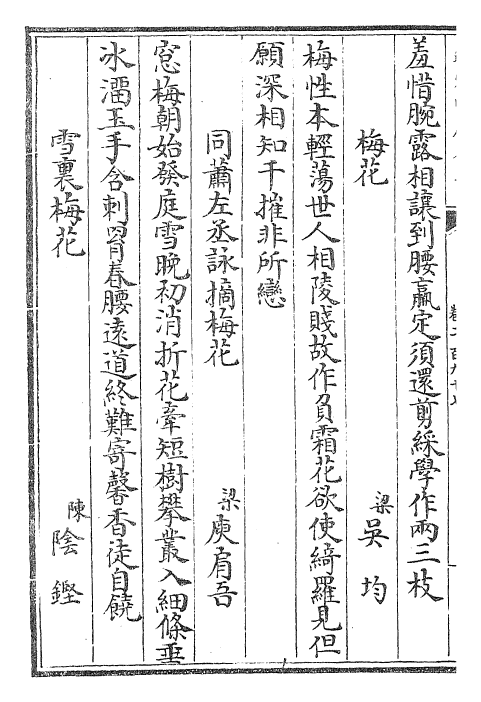 羞惜腕露相讓到腰羸定須還剪綵學作兩三枝
梅花 梁吳均
梅性本輕蕩世人相陵賤故作負霜花欲使綺羅見但
願深相知千摧非所戀
同蕭左丞詠摘梅花 梁庾肩吾
窓梅朝始發庭雪晚初消折花牽短樹攀叢入細條垂
冰溜玉手含刺罥春腰遠道終難寄馨香徒自饒
雪裏梅花 陳陰鏗